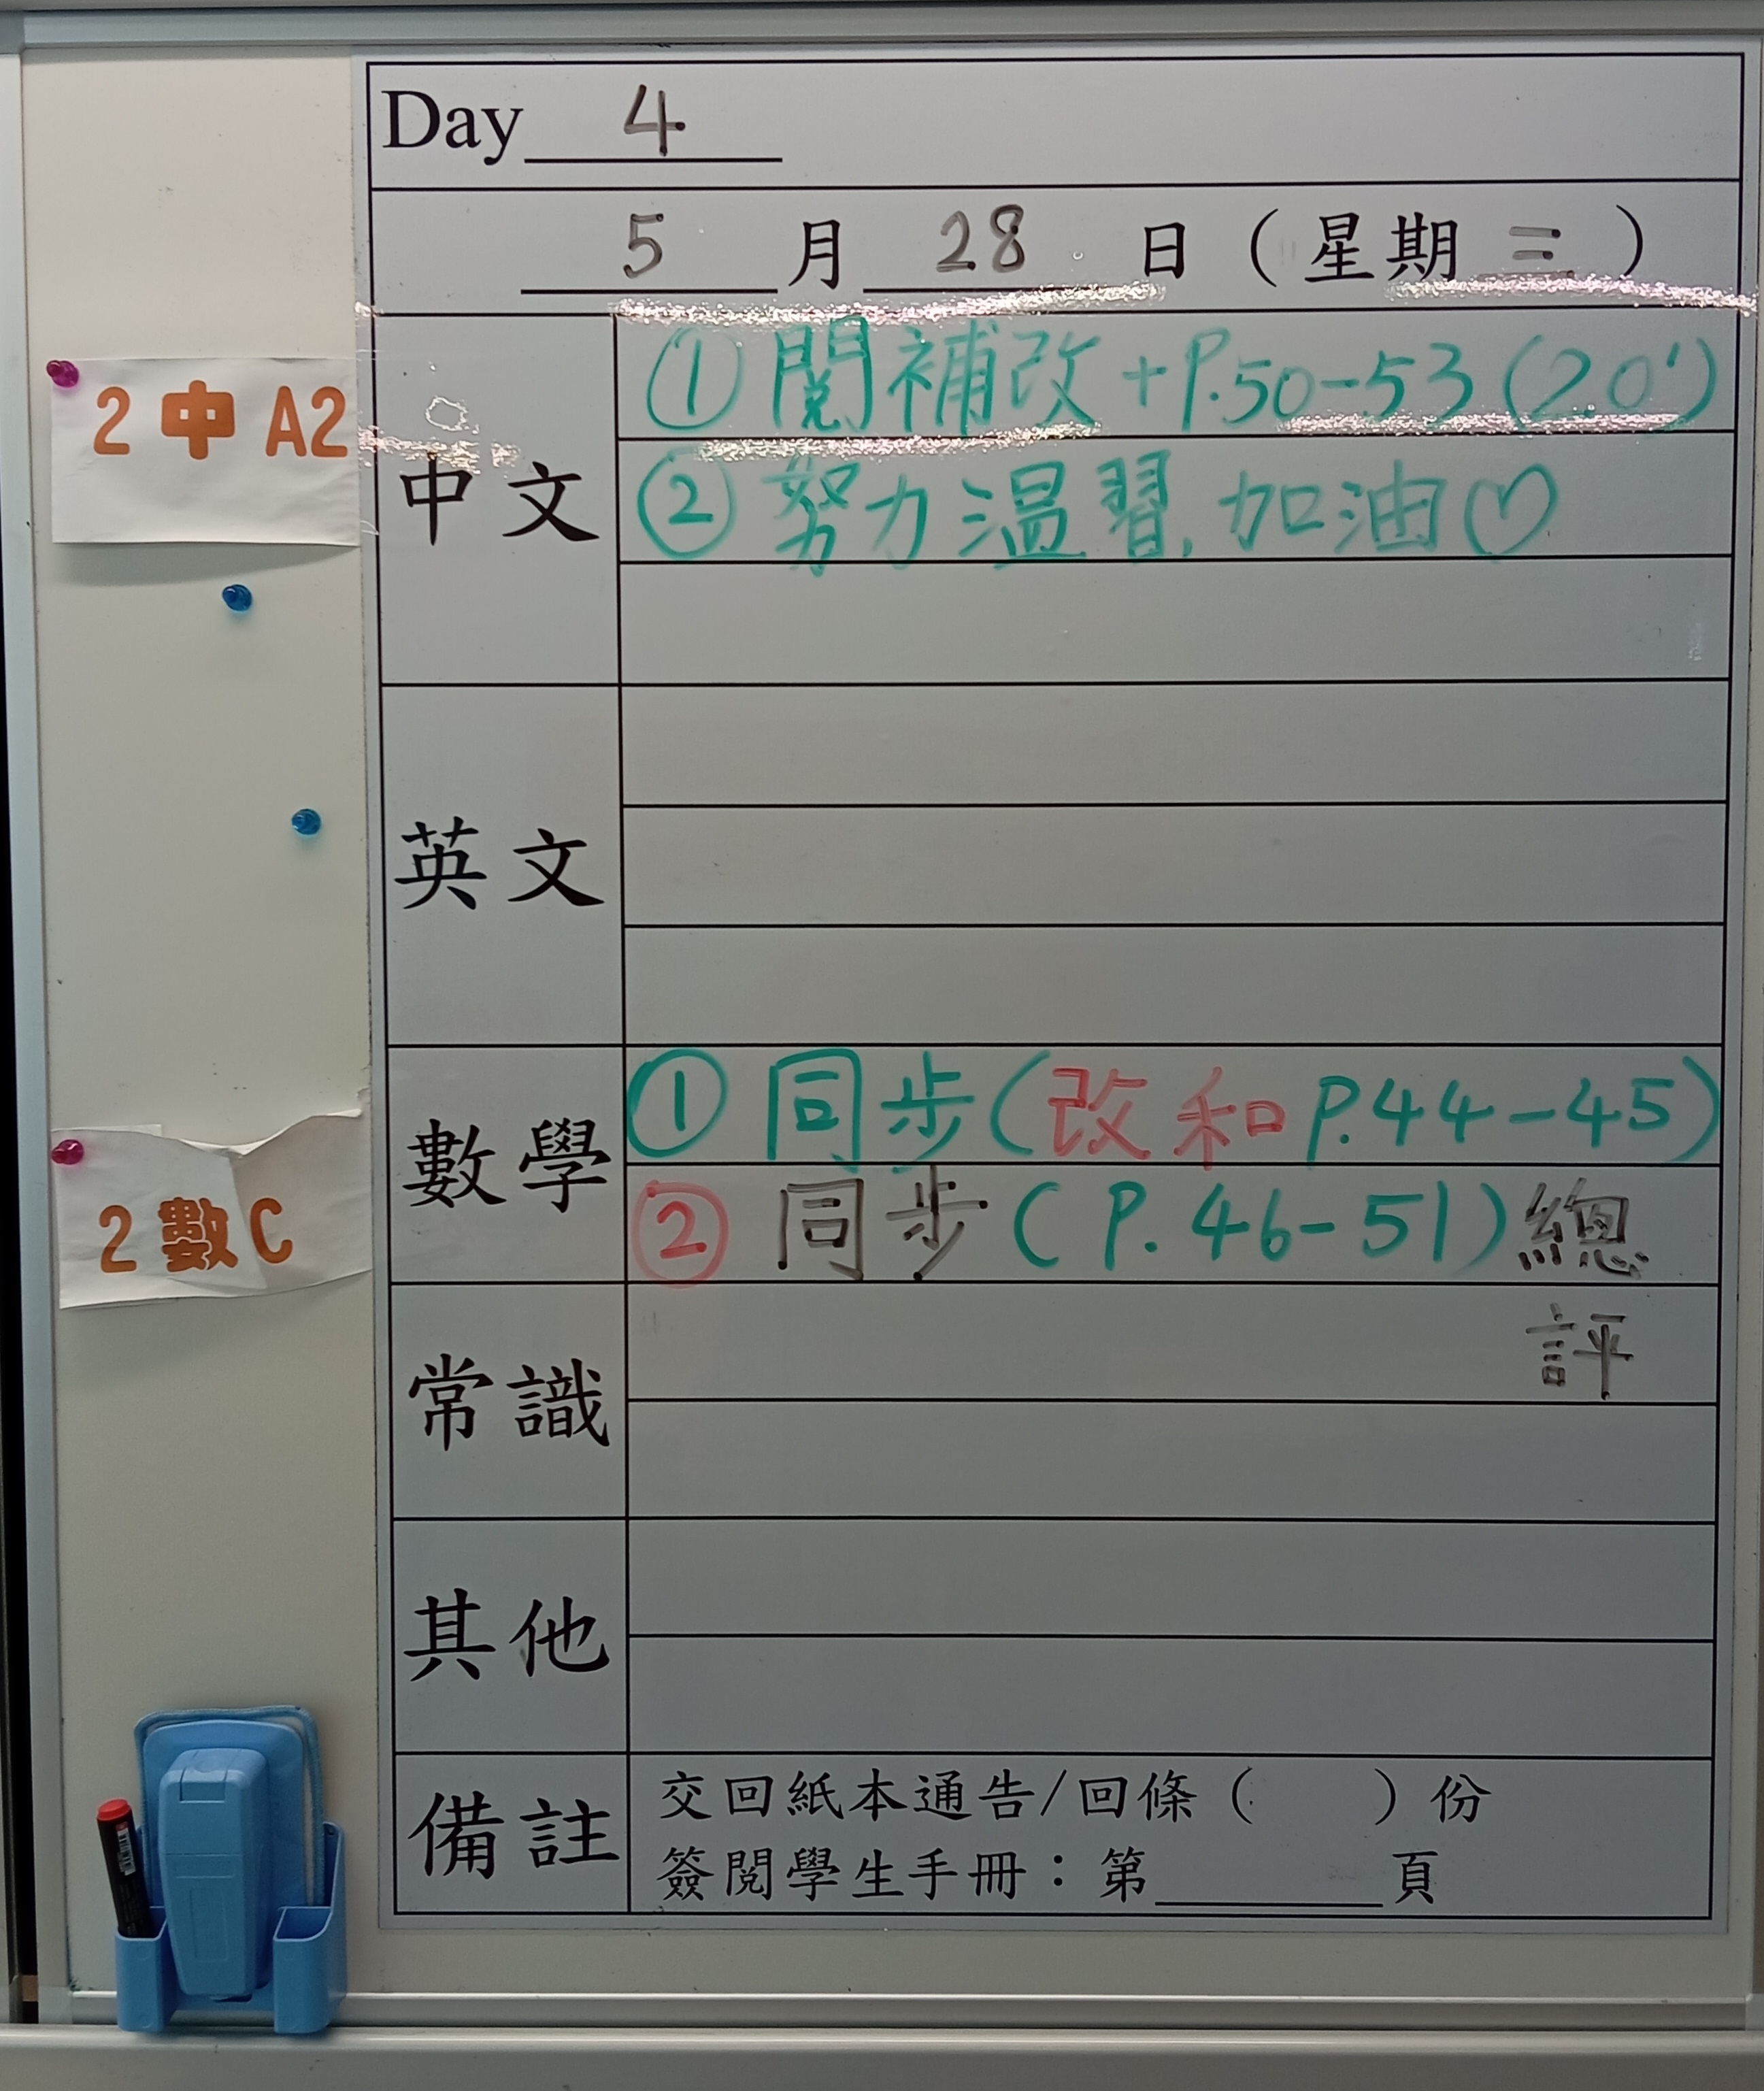 Day 4
5 月 28 日 ( 星期 二 )
2 中 A2
中文
① 閱補改 + P.50-53 (20')
② 努力温習, 加油♡
英文
2 數 C
數學
① 同步 (改和 P.44-45)
② 同步 (P.46-51) 總
評
常識
其他
備註
交回紙本通告/回條 ( ) 份
簽閱學生手冊：第______頁